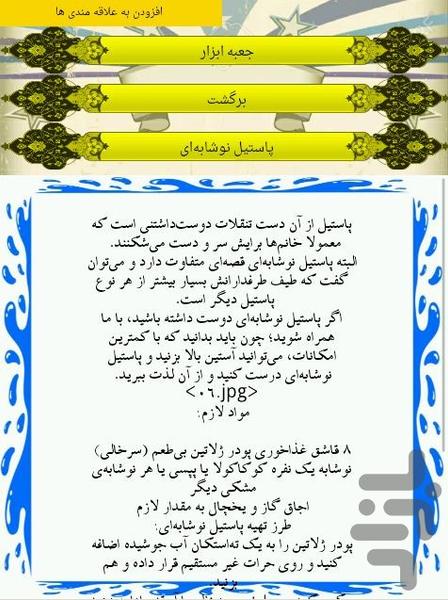 افزودن به علاقه مندی ها
جعبه ابزار
برگشت
پاستیل نوشابه‌ای
پاستیل از آن دست تنقلات دوست‌داشتنی است که
معمولا خانم‌ها برایش سر و دست می‌شکنند.
البته پاستیل نوشابه‌ای قصه‌ای متفاوت دارد و می‌توان
گفت که طیف طرفدارانش بسیار بیشتر از هر نوع
پاستیل دیگر است.
اگر پاستیل نوشابه‌ای دوست داشته باشید، با ما
همراه شوید؛ چون باید بدانید که با کمترین
امکانات، می‌توانید آستین بالا بزنید و پاستیل
نوشابه‌ای درست کنید و از آن لذت ببرید.
<۰۶.jpg>
مواد لازم:
۸ قاشق غذاخوری پودر ژلاتین بی‌طعم (سرخالی)
نوشابه یک نفره کوکاکولا یا پپسی یا هر نوشابه‌ی
مشکی دیگر
اجاق گاز و یخچال به مقدار لازم
طرز تهیه پاستیل نوشابه‌ای:
پودر ژلاتین را به یک ته‌استکان آب جوشیده اضافه
کنید و روی حرات غیر مستقیم قرار داده و هم
بزنید.
بازار